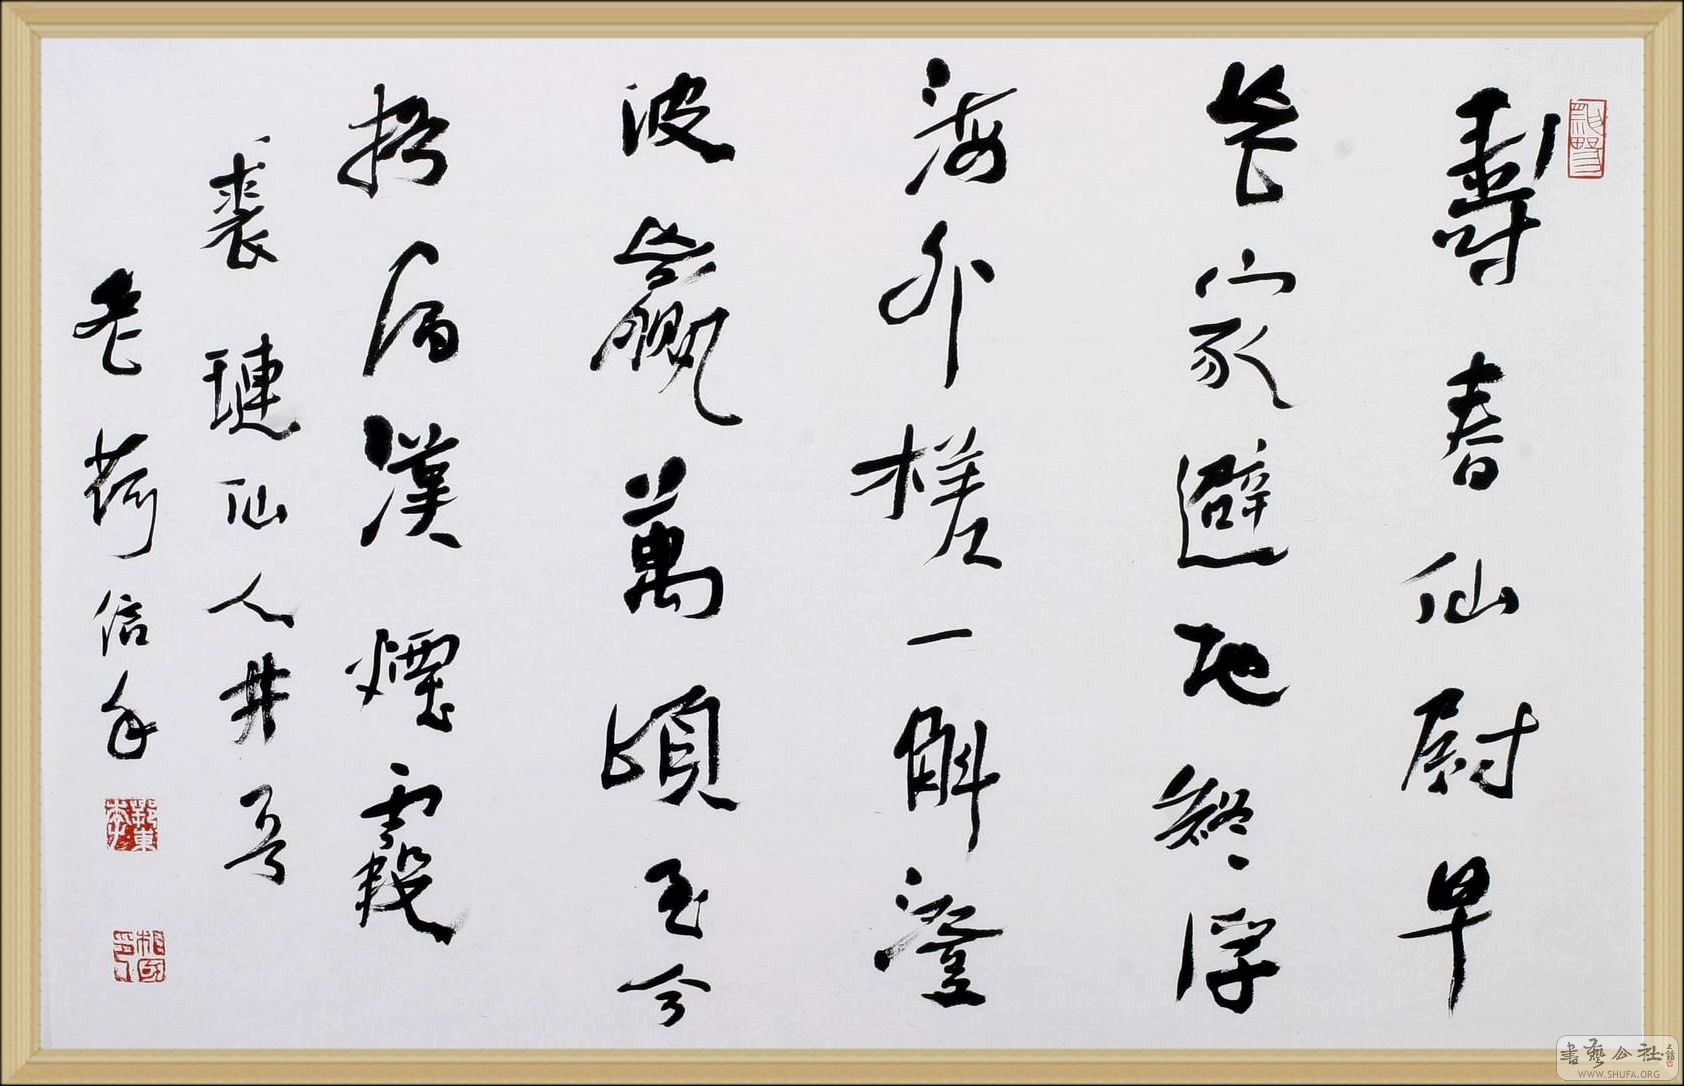 壽春仙尉早
無家避地終浮
海外槎一斛澄
波贏萬頃至今
猶屬漢煙霞
裘璉仙人井
老荷信手
書藝公社
WWW.SHUFA.ORG